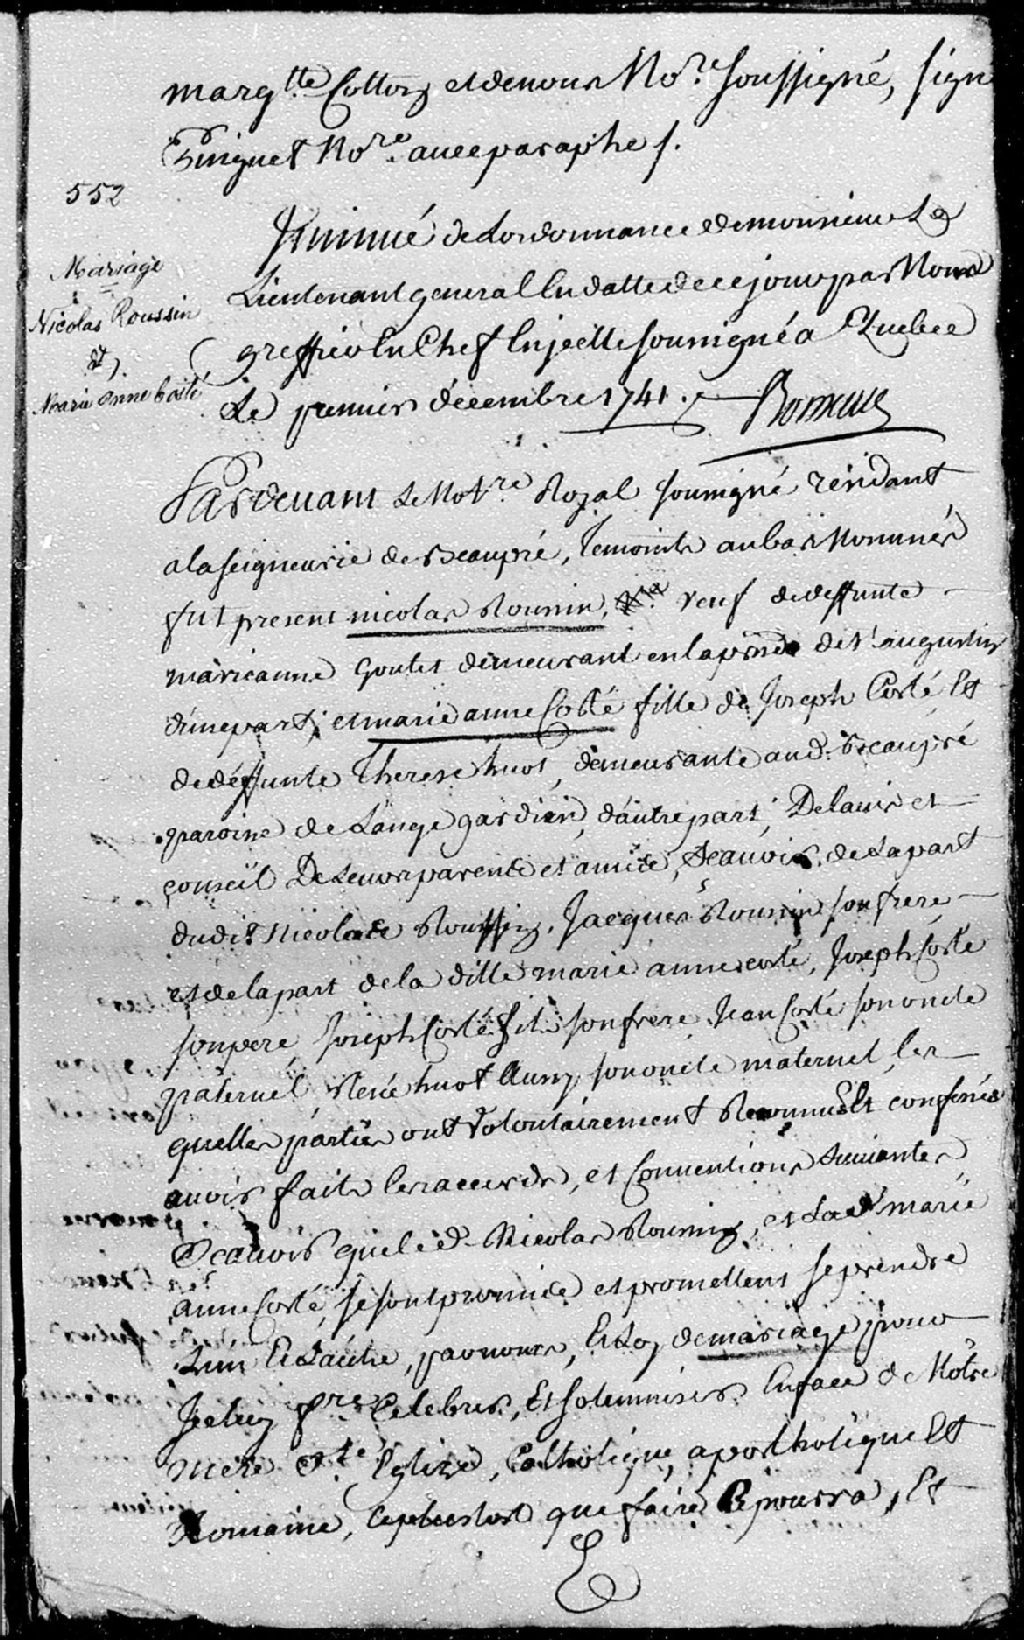 margtte Cotton et de nous Nore soussigné, signé
Pinguet Nore avec paraphe /.
552
Mariage
Nicolas Roussin
&
Marie Anne Costé
Insinué de Lordonnance de monsieur Le
Lieutenant general En datte de ce jour par Nous
greffier En Chef En icelle soussigné a Quebec
Le premier décembre 1741.
Pardevant Le Notre Royal soussigné résidant
a la seigneurie de Beaupré, Temoints au bas Nommés
fut present nicolas Roussin, veuf de deffunte
marieanne goulet demeurant en la parsse de st augustin
d'une part; et marie anne Costé fille de Joseph Costé, Et
de déffunte Therese huot, demeurante aud. Beaupré
paroisse de L'ange gardien, d'autre part, De lavis et
conseil De Leurs parents et amies, Scavoir, de La part
dudit Nicolas Roussin, Jacques Roussin son frere
et de la part de la ditte marie anne costé, Joseph Costé
son pere, Joseph Costé fils son frere Jean Costé son oncle
paternel, René huot Aussy son oncle maternel, les
quelles parties ont Volontairement Reconnu Et confessés
avoir fait les accords, et Conventions suivantes,
Scavoir que le d. Nicolas Roussin, et La de marie
anne Costé, se sont promis et promettent se prendre
L'un Et L'autre, par nom, Et Loy de mariage pour
Iceluy fre Celebrer, Et solemniser En face de Nôtre
mere ste Eglise, Catholique, apostholique Et
Romaine, le plus tost que faire se pourra, Et